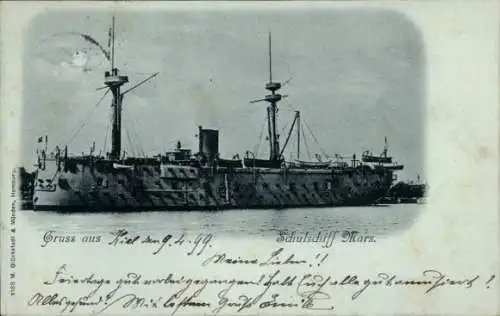 Gruss aus Kiel den 9.4.99. Schulschiff Mars.
Meine Lieben!!
Feiertage gut vorbei gegangen! Habt auch alle gut amüsiert?
Alles gesund? Mit bestem Gruss Emil
1198 M. Glückstadt & Münden, Hamburg.